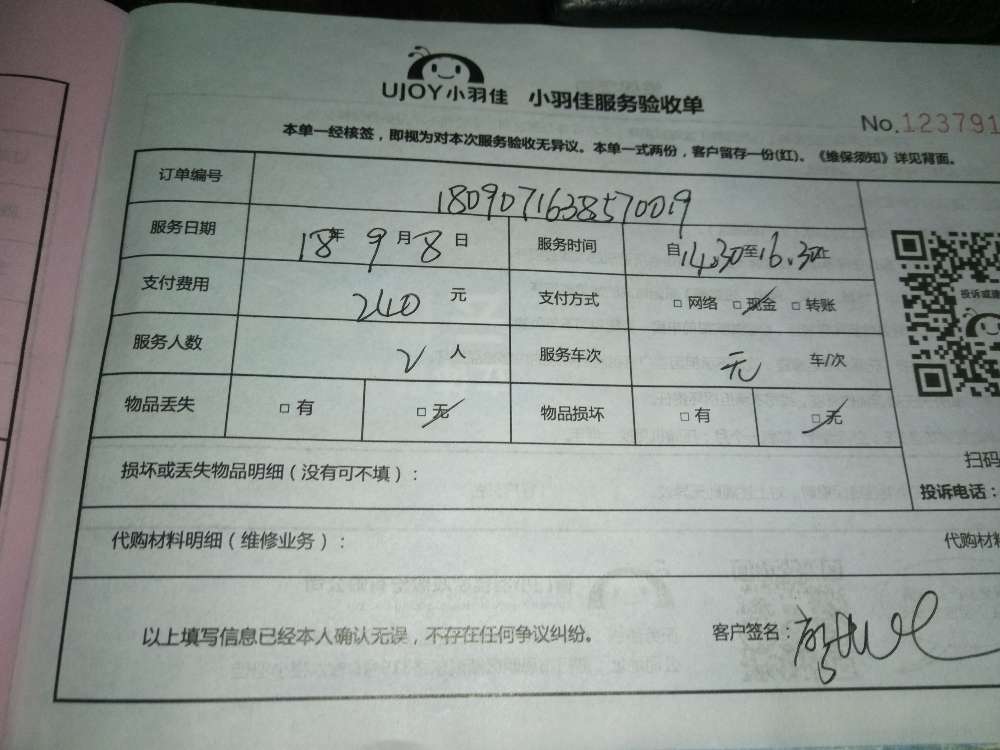 UJOY小羽佳 小羽佳服务验收单
No.123791
本单一经核签，即视为对本次服务验收无异议。本单一式两份，客户留存一份(红)。《维保须知》详见背面。
订单编号 1809071638570019
服务日期 18年9月8日 服务时间 自14.30至16.30止
支付费用 240元 支付方式 □网络 □现金 □转账
投诉或建
服务人数 2人 服务车次 无 车/次
物品丢失 □有 □无 物品损坏 □有 □无
扫码
损坏或丢失物品明细（没有可不填）：
投诉电话：
代购材料明细（维修业务）： 代购材料
以上填写信息已经本人确认无误，不存在任何争议纠纷。 客户签名：